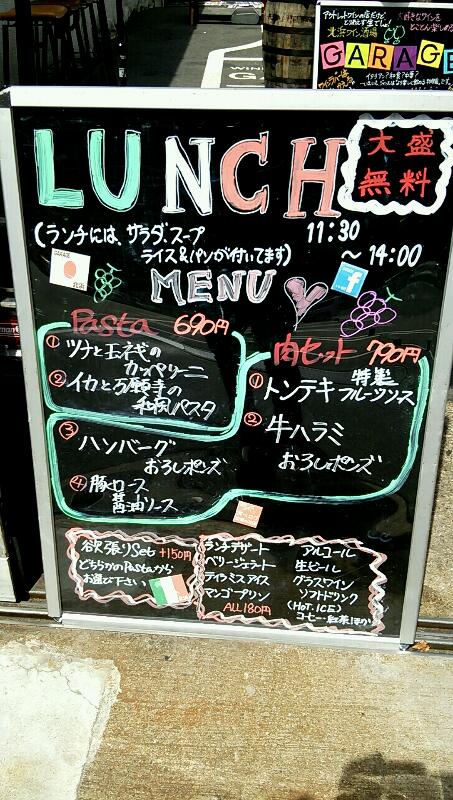 アウトレットワインの店だけど
大好きなワインを
とことん楽しめる
北浜ワイン酒場
GARAGE
WINE
G
LUNCH
大盛
無料
(ランチには、サラダ、スープ
ライス&パンが付いてます)
11:30
～14:00
GARAGE
北浜
f
MENU
Pasta 690円
①ツナと玉ネギの
カッペリーニ
②イカと万願寺の
和風パスタ
肉セット 790円
①トンテキ 特製
フルーツソース
②牛ハラミ
おろしポンズ
③ハンバーグ
おろしポンズ
④豚ロース
醤油ソース
欲張りSet +150円
どちらかのPastaから
お選び下さい
ランチデザート
ベリージェラート
ティラミスアイス
マンゴプリン
ALL180円
アルコール
生ビール
グラスワイン
ソフトドリンク
(HOT.ICE)
コーヒー・紅茶ほか